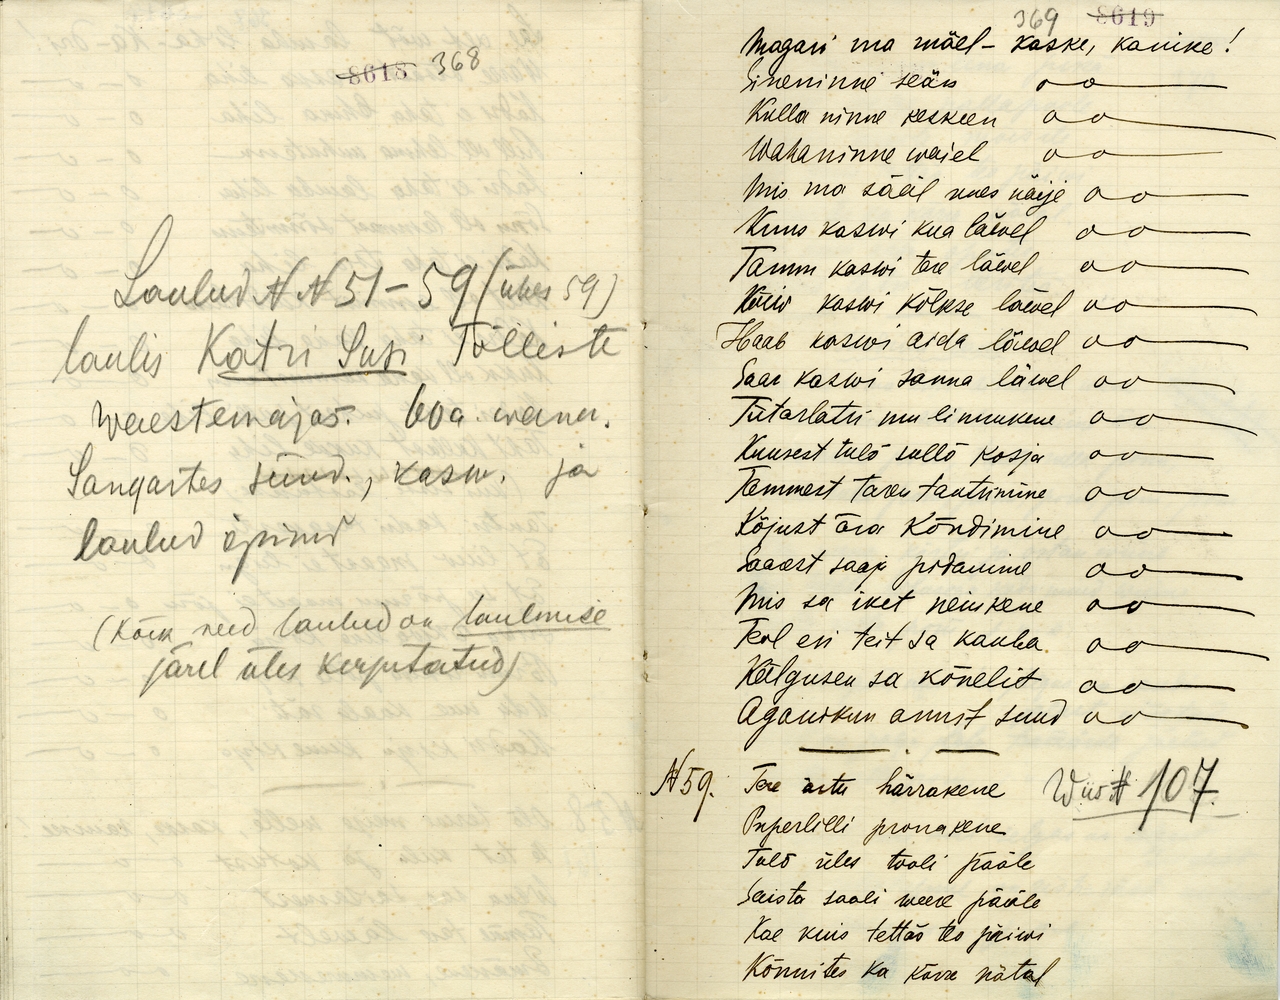 8618 368
Laulud NN 51-59 (ühes 59)
laulis Katri Susi Tõlliste
waestemajas. 60 a. wana.
Sangastes sünd., kasw. ja
laulud õpind
(Kõik need laulud on laulmise
järel üles kirjutatud)
369 8619
Magasi ma mäel - kaske, kanike!
Sineninne seän
Kulla ninne keskeen
Wahaninne waiel
Mis ma sääl unes näije
Kuus kaswi kua läwel
Tamm kaswi tare läwel
Kõiw kaswi kõlkse läwel
Haab kaswi aida läwel
Saar kaswi sanna läwel
Tütarlatsi mu linnukene
Kuusest tulõ sullõ kosja
Tammest tarru tautsimine
Kõjust ära kõndimine
Saarest saaja pidamine
Mis sa iket neiukene
Teol es teit sa kauba
Kälgusen sa kõnelit
Aganikun annit suud
N 59. Tere armu härrakene Wiis # 107.
Piperlilli prouakene
Tulõ üles tooli pääle
Saista saali weere pääle
Kae kuis tettäs teo päiwi
Kõnnites ka kõrre nätal